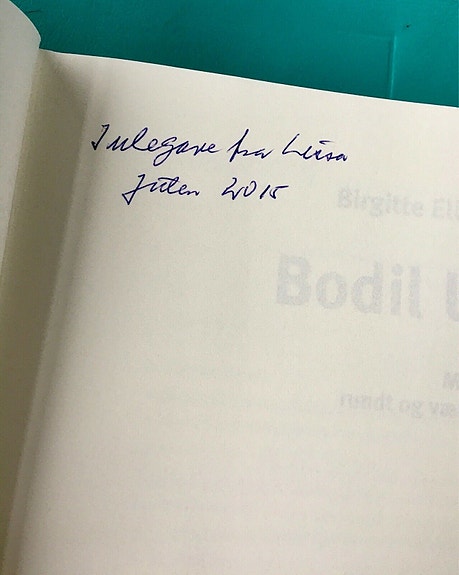 Julegave fra Luisa
Julen 2015
Birgitte
Bodil
M
rundt og væ